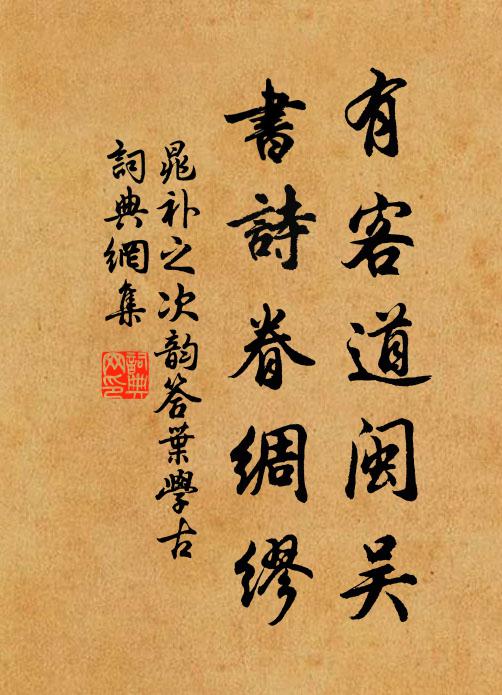 有客道闽吴
書詩眷綢繆
晁补之次韵答葉學古
詞典網集
詞典网印